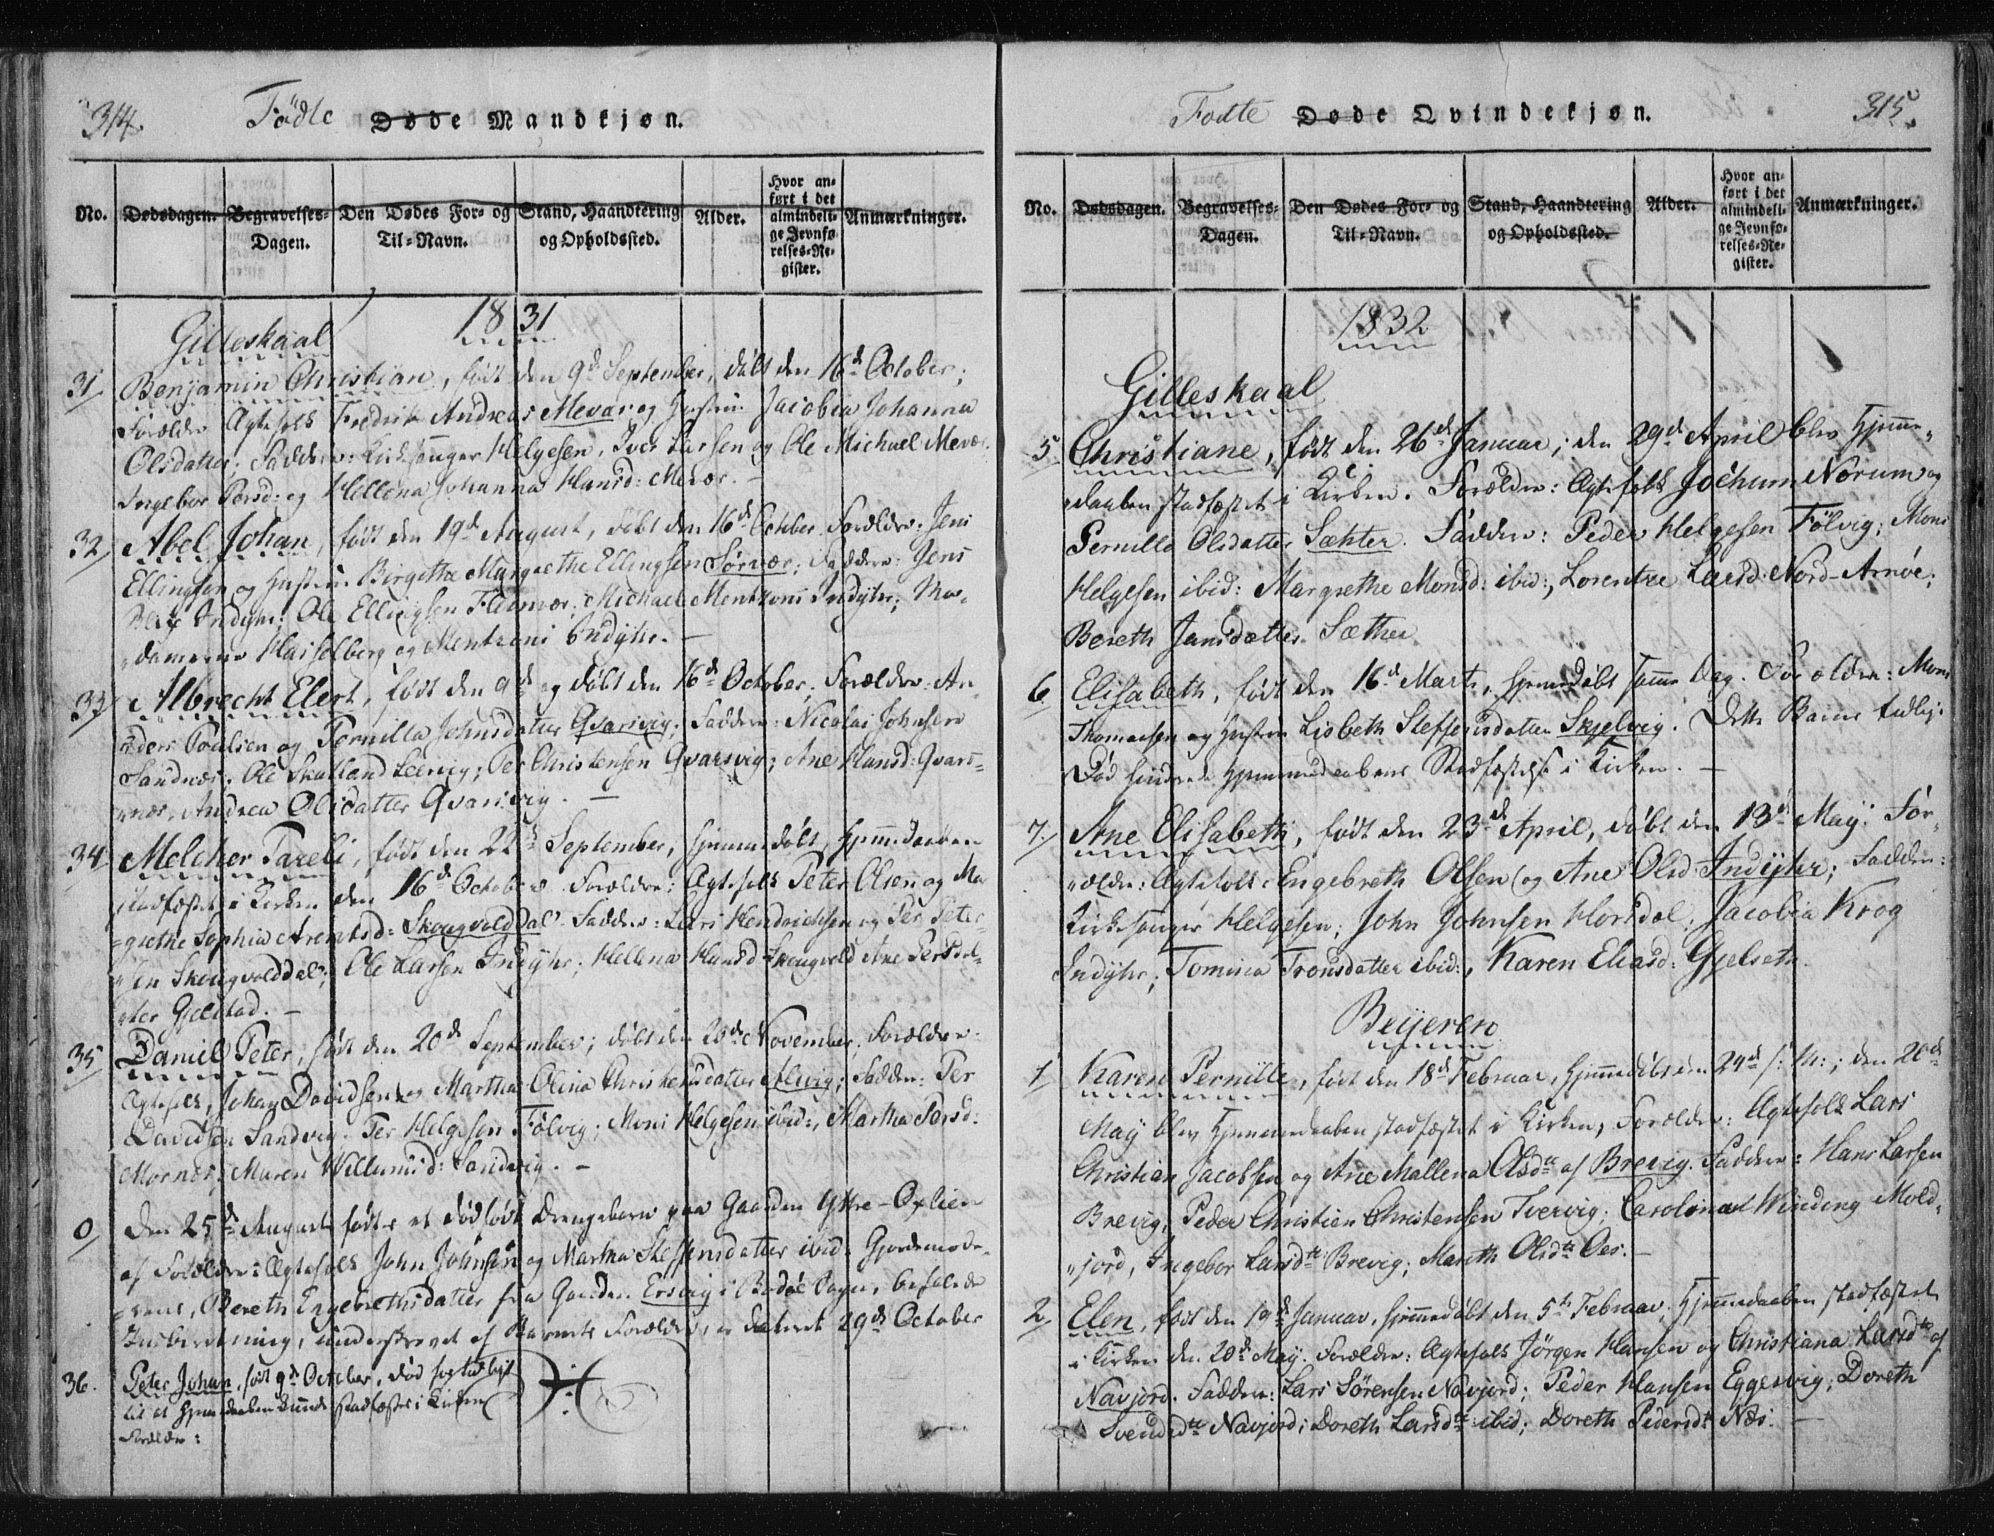 314.
Födte Døde Mandkjøn.
No. Dødsdagen. Begravelses-Dagen. Den Dødes For- og Til-Navn. Stand, Haandtering og Opholdssted. Alder. Hvor anført i det almindelige Jevnførelses-Register. Anmærkninger.
1831
Gilleskaal
31 Benjamin Christian, født den 9d September, døbt den 16d October;
Forældre Ægtefolk Fredrik Andreas Mevær og Hustru Jacobia Johanna
Olsdatter. Faddere: Kirkesanger Helgesen, Iver Larsen og Ole Michael Mevær.
Ingebor Persd: og Hellena Johanna Hansd: Mevær.
32 Abel Johan, født den 19d August, døbt den 16d October. Forældre: Jens
Ellingsen og Hustru Birgitha Margrethe Ellingsen Sørvær; Faddere: Jens
Indyhr; Ole Ellingsen Fleinvær; Michael Mentzoni Indyhr; Ma-
damerne Hasselberg og Mentzoni Indyhr. —
33 Albrecht Elert, født den 9d og døbt den 16d October. Forældre: An-
ders Poulsen og Pernilla Johnsdatter Qvarsvig; Faddere: Nicolai Johnsen
Sandnæs; Ole Skalland Leervig; Per Christensen Qvarsvig; Ane Hansd: Qvars-
næs, Andrea Olsdatter Qvarsvig. —
34 Melcher Pareli, født den 22d September, hjemmedøbt, hjemmedaaben
stadfæstet i Kirken den 16d October. Forældre: Ægtefolk Peter Olsen og Ma-
grethe Sophia Arentsd: Skougvolddal. Faddere: Lars Hendrichsen og Per Peter-
sen Skougvolddal; Ole Larsen Indyhr; Hellena Hansd Skougvold Ane Persdat-
ter Gjelstad. —
35 Daniel Peter, født den 20d September; døbt den 20de November. Forældre:
Ægtefolk, Johan Davidsen og Martha Olina Christensdatter Alvig; Faddere: Per
Davidsen Sandvig. Per Helgesen Følvig; Mons Helgesen ibid:, Martha Persd:
Mornes; Maren Willumsd: Sandvig. —
0 Den 25de August fødtes et dødfødt Drengebarn paa Gaarden Ytre-Oxlien
af Forældre: Ægtefolk John Johnsen og Martha Steffensdatter ibid: Gjordemode-
rens, Bereth Engebrethsdatter fra Gaarden Ersvig i Bodøe Sogn, befalede
Indberetning, underskrevet af Barnets Forældre, er dateret 29de October
36. Peter Johan, født 9d October, død for tidligt
til at hjemmedaaben kunde stadfæstes i Kirken
Forældre:
315.
Fødte Døde Qvindekjøn.
No. Dødsdagen. Begravelses-Dagen. Den Dødes For- og Til-Navn. Stand, Haandtering og Opholdssted. Alder. Hvor anført i det almindelige Jevnførelses-Register. Anmærkninger.
1832
Gilleskaal
5 Christiane, født den 26d Januar; den 29d April blev Hjemme-
daaben stadfæstet i Kirken. Forældre: Ægtefolk Jochum Nørum og
Pernilla Olsdatter Sæhter. Faddere: Peder Helgesen Følvig; Mons
Helgesen ibid: Margrethe Monsd: ibid:, Lorentze Larsd: Nord-Arnøe;
Bereth Jansdatter Sæther
6 Elisabeth, født den 16d Marts, hjemmedøbt samme Dag. Forældre: Mons
Thomassen og Hustru Lisbeth Steffensdatter Skjelvig. Dette Barns tidlige
Død hindrede hjemmedaabens Stadfæstelse i Kirken. —
7 Ane Elisabeth, født den 23d April, døbt den 13d May. For-
ældre: Ægtefolk: Engebreth Olsen og Ane Olsd: Indyhr; Faddere:
Kirkesanger Helgesen; John Johnsen Horsdal; Jacobia Krog
Indyhr; Tomina Tronsdatter ibid:, Karen Eliasd: Gjelseth.
Beijeren
1 Karen Pernille, født den 18d Februar, hjemmedøbt den 24d s: M:; den 20d
May blev Hjemmedaaben stadfæstet i Kirken, Forældre: Ægtefolk Lars
Christian Jacobsen og Ane Mallena Olsdtr af Brevig. Faddere: Hans Larsen
Brevig, Peder Christian Christensen Tvervig; Carolina Winding Mold-
jord, Ingebor Larsdtr Brevig; Mareth Olsdtr Oes. —
2 Elen, født den 19d Januar, hjemmedøbt den 5te Februar, hjemmedaaben stadfæstet
i Kirken den 20d May. Forældre: Ægtefolk Jørgen Hansen og Christiana Larsdtr af
Navjord. Faddere: Lars Sørensen Navjord; Peder Hansen Eggesvig; Doreth
Svendsdtr Navjord; Doreth Larsdtr ibid; Doreth Pedersdtr Næs. —